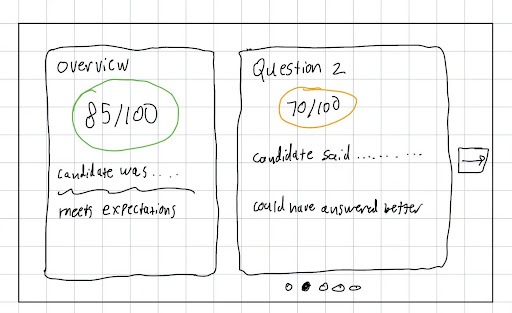 Overview
85/100
candidate was....
meets expectations
Question 2
70/100
candidate said.........
could have answered better